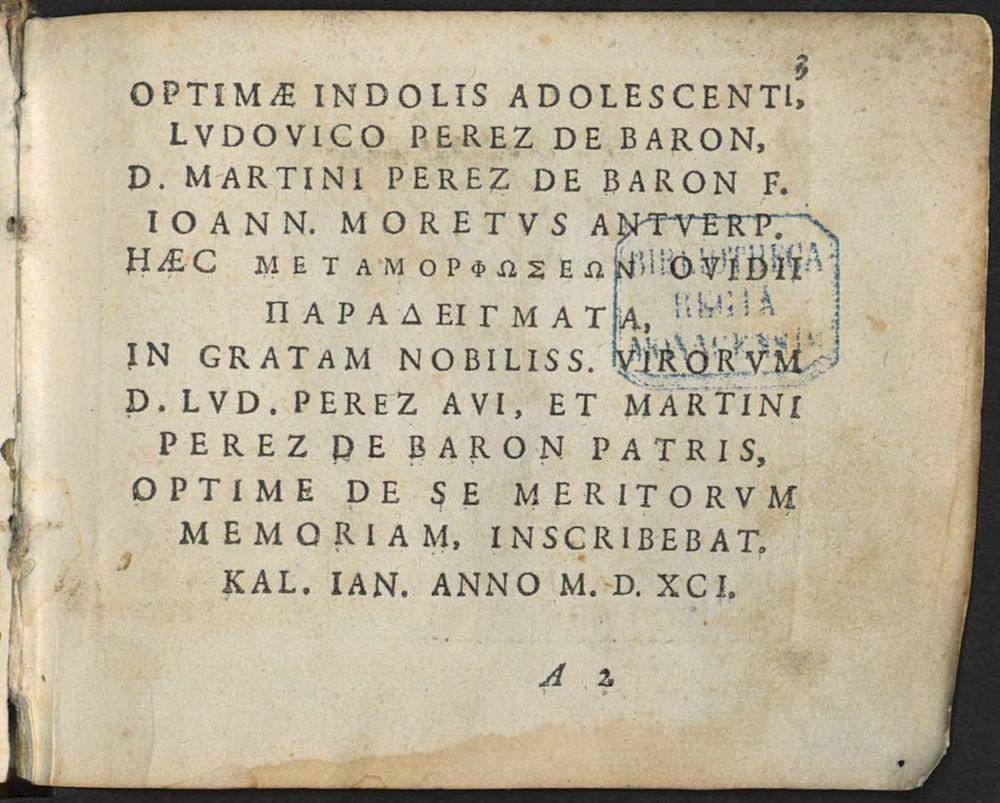 3
OPTIMÆ INDOLIS ADOLESCENTI,
LVDOVICO PEREZ DE BARON,
D. MARTINI PEREZ DE BARON F.
IOANN. MORETVS ANTVERP.
HÆC ΜΕΤΑΜΟΡΦΩΣΕΩΝ OVIDII
ΠΑΡΑΔΕΙΓΜΑΤΑ,
IN GRATAM NOBILISS. VIRORVM
D. LVD. PEREZ AVI, ET MARTINI
PEREZ DE BARON PATRIS,
OPTIME DE SE MERITORVM
MEMORIAM, INSCRIBEBAT.
KAL. IAN. ANNO M. D. XCI.
A 2
BIBLIOTHECA
REGIA
MONACENSIS